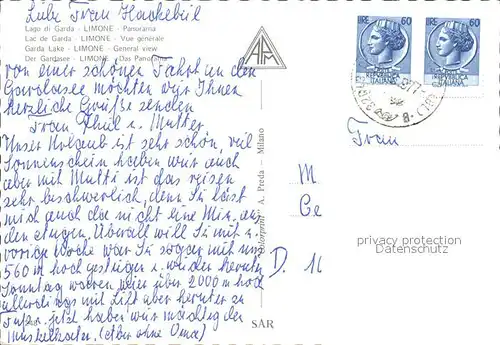 Liebe Frau Hackebeil
Lago di Garda - LIMONE - Panorama
Lac de Garda - LIMONE - Vue générale
Garda Lake - LIMONE - General view
Der Gardasee - LIMONE - Das Panorama
von einer schönen Fahrt an den
Gardasee möchten wir Ihnen
herzliche Grüße senden
Frau Thiel u. Mutter
Unser Urlaub ist sehr schön, viel
Sonnenschein haben wir auch
aber mit Mutti ist das reisen
sehr beschwerlich, denn Sie läst
mich auch da nicht eine Min. aus
den Augen. Überall will Sie mit u.
vorige Woche war Sie sogar mit uns
560 m hoch gestiegen u. wieder herunter
Sonntag waren wir über 2000 m hoch
allerdings mit Lift aber herunter zu
Fuß. jetzt haben wir mächtig den
Muskelkater. (Aber ohne Oma)
APM
Colorprint A. Preda - Milano
SAR
LIRE 60
REPVBBLICA ITALIANA
LIRE 60
REPVBBLICA ITALIANA
Frau
M
Ge
D. 16
privacy protection
Datenschutz